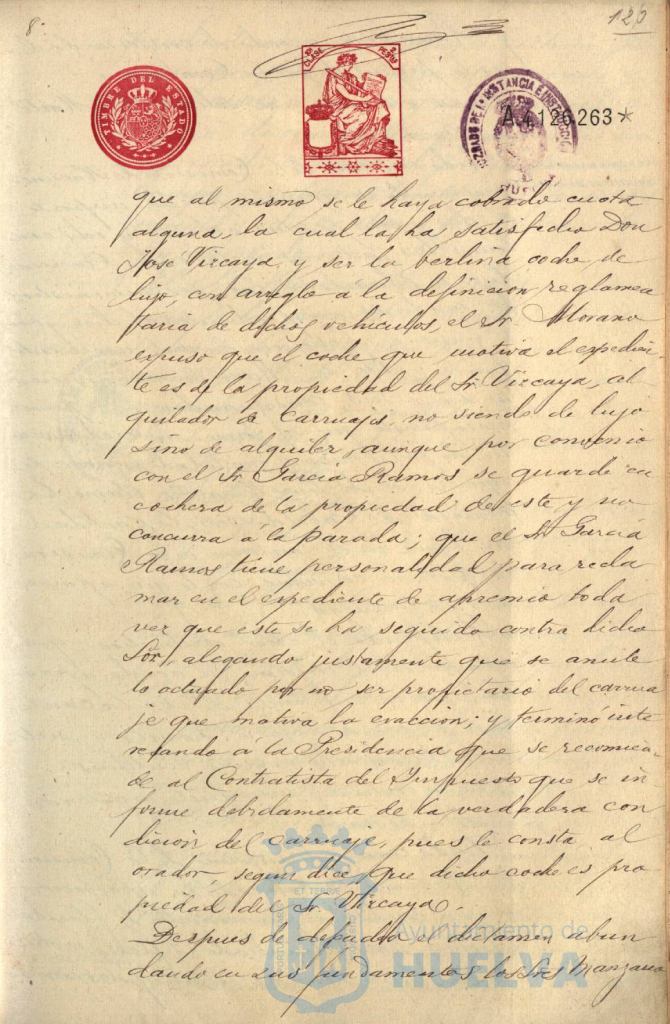 8.
123
TIMBRE DEL ESTADO
10ª CLASE
PESETAS
JUZGADO DE 1ª INSTANCIA E INSTRUCCION
HUELVA
A4126263*
que al mismo se le haya cobrado cuota
alguna, la cual la ha satisfecho Don
Jose Vizcaya y ser la berlina coche de
lujo, con arreglo á la definicion reglamen
taria de dichos vehículos, el Sr. Morano
expuso que el coche que motiva el expedien-
te es de la propiedad del Sr. Vizcaya, al
quilador de carruajes, no siendo de lujo
sino de alquiler, aunque por convenio
con el Sr. García Ramos se guarde en
cochera de la propiedad de este y no
concurra á la parada; que el Sr. García
Ramos tiene personalidad para recla
mar en el expediente de apremio toda
vez que este se ha seguido contra dicho
Sor, alegando justamente que se anule
lo actuado por no ser propietario del carrua
je que motiva la exaccion; y terminó inte
resando á la Presidencia que se recomien-
de al Contratista del Impuesto que se in
forme debidamente de la verdadera con
dicion del carruaje, pues le consta al
orador, segun dice, que dicho coche es pro
piedad del Sr. Vizcaya.
Despues de defendia el dictamen abun
dando en sus fundamentos los Sres Manzano
Ayuntamiento de
HUELVA